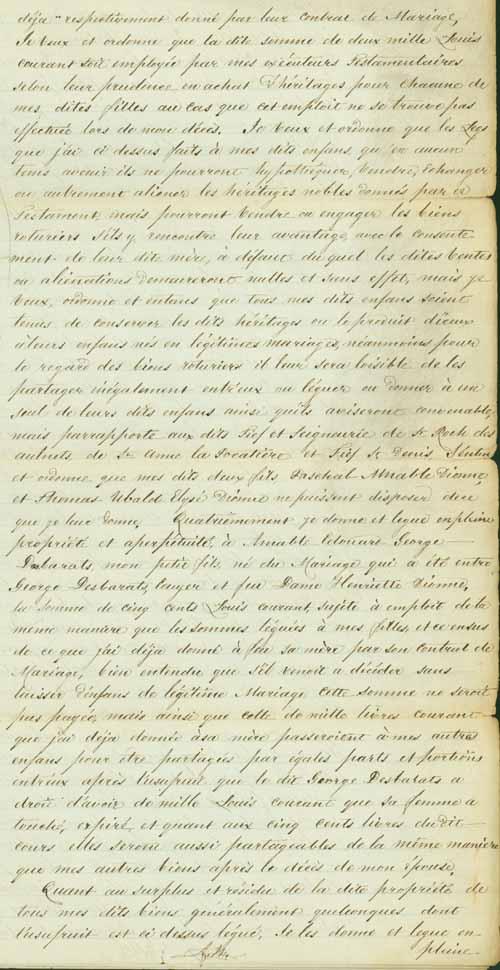 déja" respectivement donné par leur contrat de Mariage,
Je veux et ordonne que la dite somme de deux mille Louis
courant soit employée par mes exécuteurs Testamentaires
selon leur prudence en achat d'héritages pour chacune de
mes dites filles au cas que cet emploit ne se trouve pas
effectué lors de mon décès. Je veux et ordonne que les Legs
que j'ai ci dessus faits à mes dits enfans, qu'en aucun
tems avenir ils ne pourront hypothéquer, Vendre, Echanger
ou autrement aliéner les héritages nobles donnés par ce
Testament, mais pourront Vendre ou engager les biens
roturiers s'ils y rencontre leur avantage, avec le consente
ment de leur dite mère, à défaut duquel les dites Ventes
ou aliénations demeureront nulles et sans effet, mais je
veux, ordonne et entens que tous mes dits enfans soient
tenus de conserver les dits héritages ou le produit d'iceux
à leurs enfans nés en légitimes mariages, néanmoins pour
le regard des biens roturiers il leur sera loisible de les
partager inégalement entr'eux ou léguer ou donner à un
seul de leurs dits enfans ainsi qu'ils aviseront convenable,
mais parrapporte aux dits Fief et Seigneurie de St. Roch des
aulnets de Ste Anne la Pocatière et Fief St Denis
et ordonne que mes dits deux fils Paschal Amable Dionne
et Thomas Ubald Elysé Dionne ne puissent disposer de ce
que je leur donne. Quatrièmement je donne et legue en pleine
propriété et a perpétuité, à Amable Edouard George
Desbarats, mon petit fils, né du Mariage qui a été entre
George Desbarats, Ecuyer et feu Dame Henriette Dionne,
la somme de cinq cents Louis courant, sujète à emploit de la
même manière que les sommes léguées à mes filles, et ce en sus
de ce que j'ai déja donné à feu sa mère par son contrat de
Mariage, bien entendu que s'il venoit a décéder sans
laisser d'enfans de légitime Mariage cette somme ne seroit
pas payée, mais ainsi que celle de mille livres courant
que j'ai déja donnée à sa mère passeroient à mes autres
enfans pour être partagées par égales parts et portions
entr'eux après l'usufruit que le dit George Desbarats a
droit d'avoir de mille Louis courant que sa femme a
touché, expiré, et quant aux cinq cents livres du dit
cours elles seront aussi partageables de la même manière
que mes autres biens après le décès de mon épouse.
Quant au surplus et résidu de la dite propriété de
tous mes dits biens généralement quelconques dont
l'usufruit est ci dessus légué, Je les donne et legue en
pleine